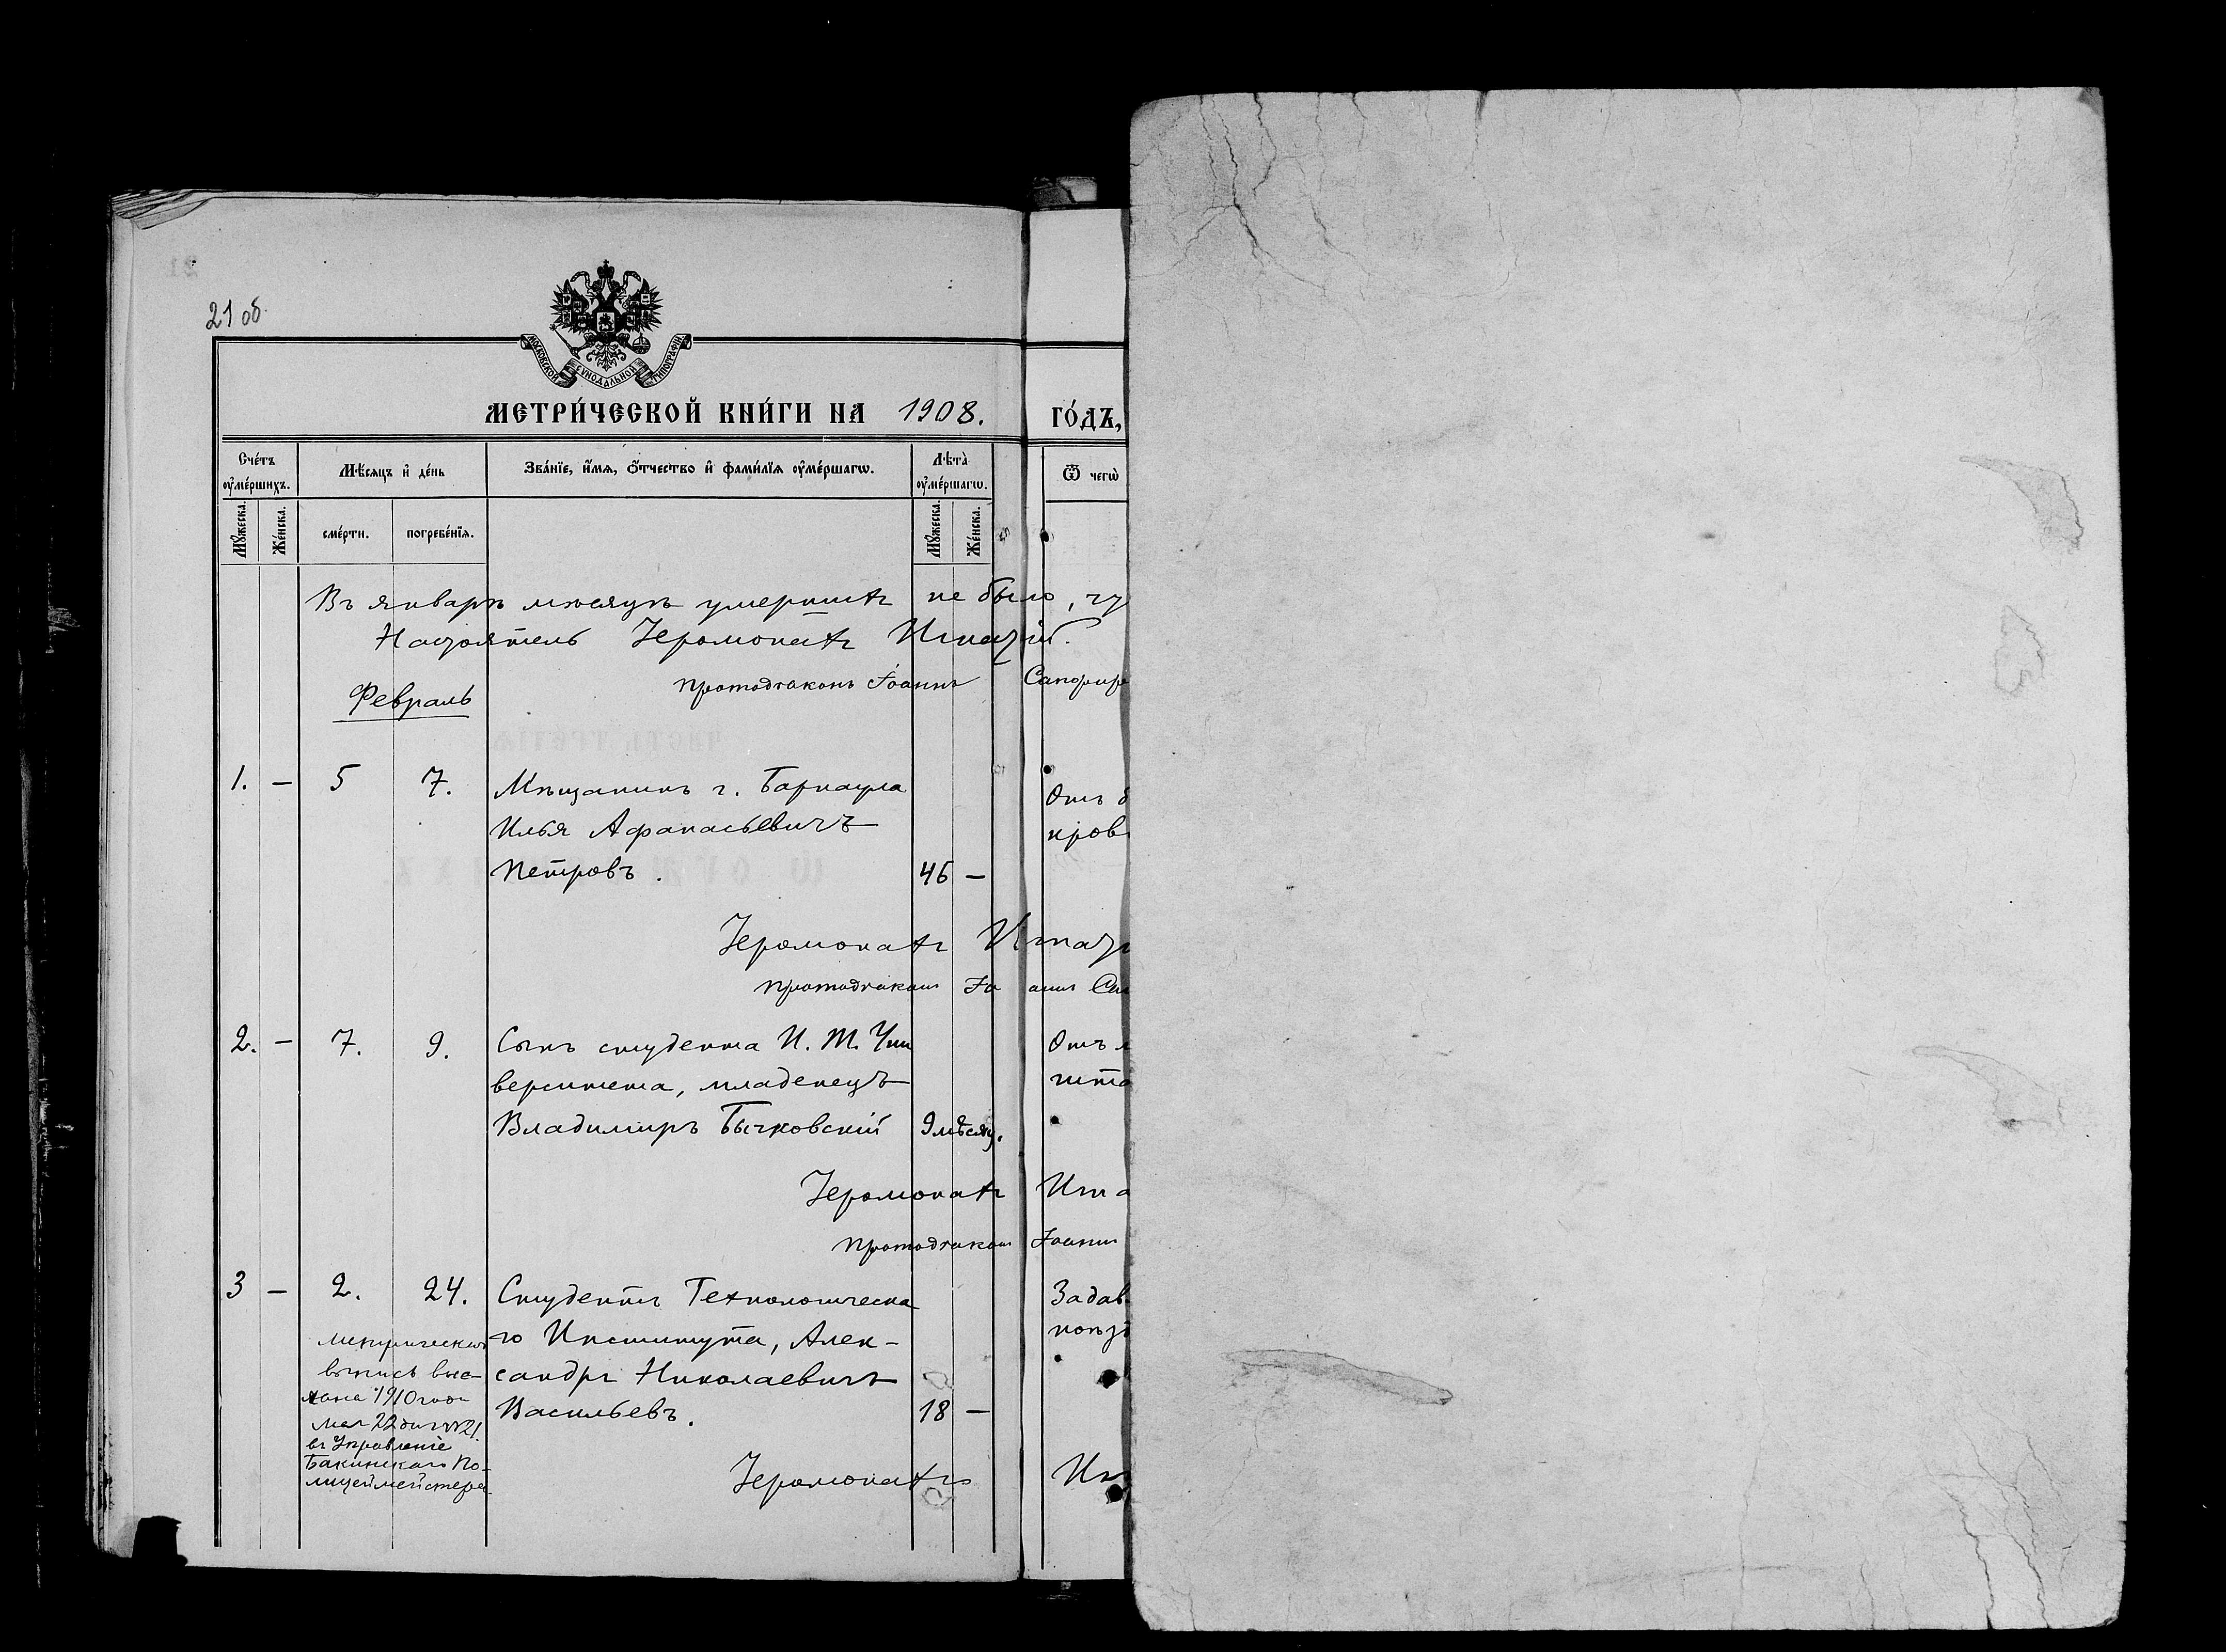 21 об.
МОСКОВСКОЙ СѴНОДАЛЬНОЙ ТИПОГРАФІИ
МЕТРИ́ЧЕСКОЙ КНИ́ГИ НА 1908. ГО́ДЪ,
Сче́тъ ᲂу҆ме́ршихъ.
Мѣ́сяцъ и҆ де́нь
Зва́нїе, и҆́мя, ѻ҆́тчество и҆ фами́лїя ᲂу҆ме́ршагѡ.
Лѣта̀ ᲂу҆ме́ршагѡ.
Ѿ чегѡ̀
Мꙋ́жеска.
Же́нска.
сме́рти.
погребе́нїѧ.
Мꙋ́жеска.
Же́нска.
Въ январѣ мѣсяцѣ умершихъ не было,
Настоятель Іеромонахъ Игнатій.
Протодіаконъ Іоаннъ Сапфир
Февраль
1. – 5 7. Мѣщанинъ г. Барнаула
Илья Афанасьевичъ
Петровъ. 46 –
Отъ
кров
Іеромонахъ Игнат
Протодіаконъ Іоаннъ
2. – 7. 9. Сынъ студента И. Т. Уни
верситета, младенецъ
Владимиръ Бычковскій 9 мѣсяц.
Отъ
Іеромонахъ Игна
Протодіаконъ Іоаннъ
3 – 2. 24. Студентъ Технологическа
го Института, Алек-
сандръ Николаевичъ
Васильевъ. 18 –
Задав
поѣзд
Метрическая
выпись выс-
лана 1910 года
мая 22 дня №21.
въ Управленіе
Бакинскаго По-
лицеймейстера.
Іеромонахъ Иг